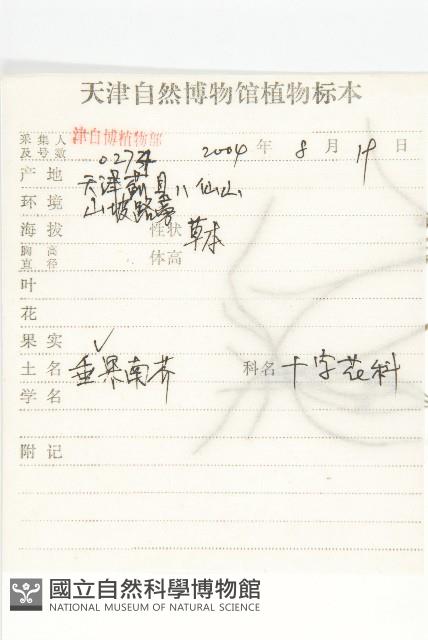 天津自然博物馆植物标本
采集人及号数 津自博植物部 0273 2004年 8月 19日
产地 天津蓟县八仙山
环境 山坡路旁
海拔 性状 草本
胸高直径 体高
叶
花
果实
土名 垂果南芥 科名 十字花科
学名
附记
國立自然科學博物館
NATIONAL MUSEUM OF NATURAL SCIENCE